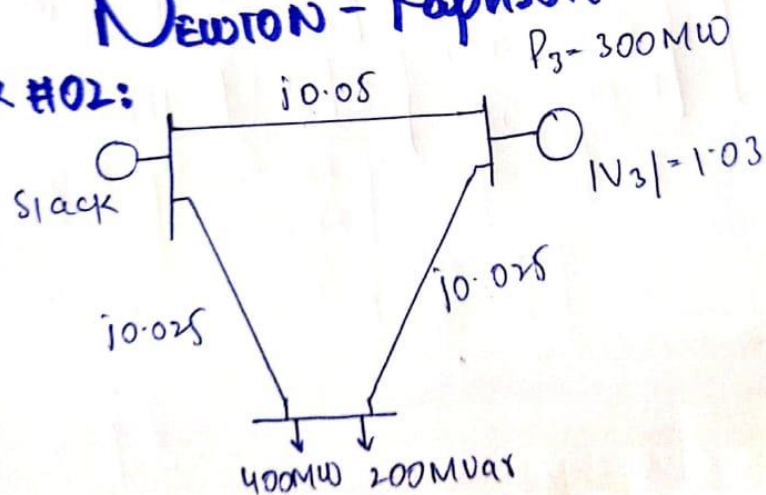 NEWTON -
#02:
P3- 300MW
j0.05
Slack
|V3| = 1.03
j0.025
j0.025
400MW 200Mvar